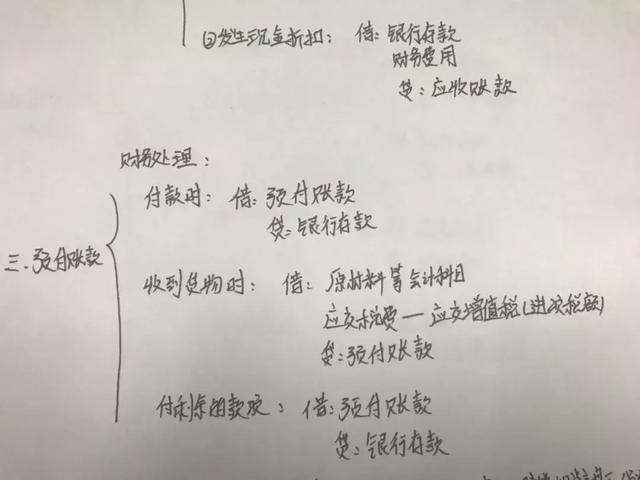 ②发生现金折扣: 借: 银行存款
财务费用
贷: 应收账款
财务处理:
付款时: 借: 预付账款
贷: 银行存款
三.预付账款
收到货物时: 借: 原材料等会计科目
应交税费—应交增值税(进项税额)
贷: 预付账款
付剩余的款项: 借: 预付账款
贷: 银行存款